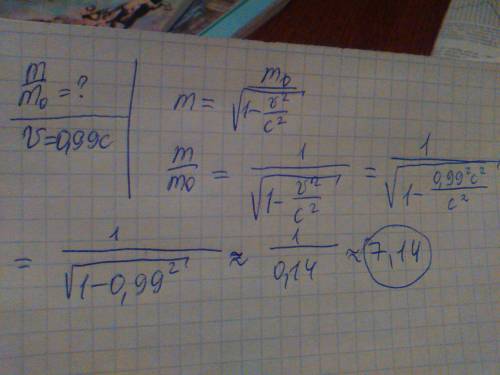 m/m₀ = ?
v=0,99c
m = m₀/√(1-v²/c²)
m/m₀ = 1/√(1-v²/c²) = 1/√(1-0,99²c²/c²)
= 1/√(1-0,99²) ≈ 1/0,14 ≈ 7,14